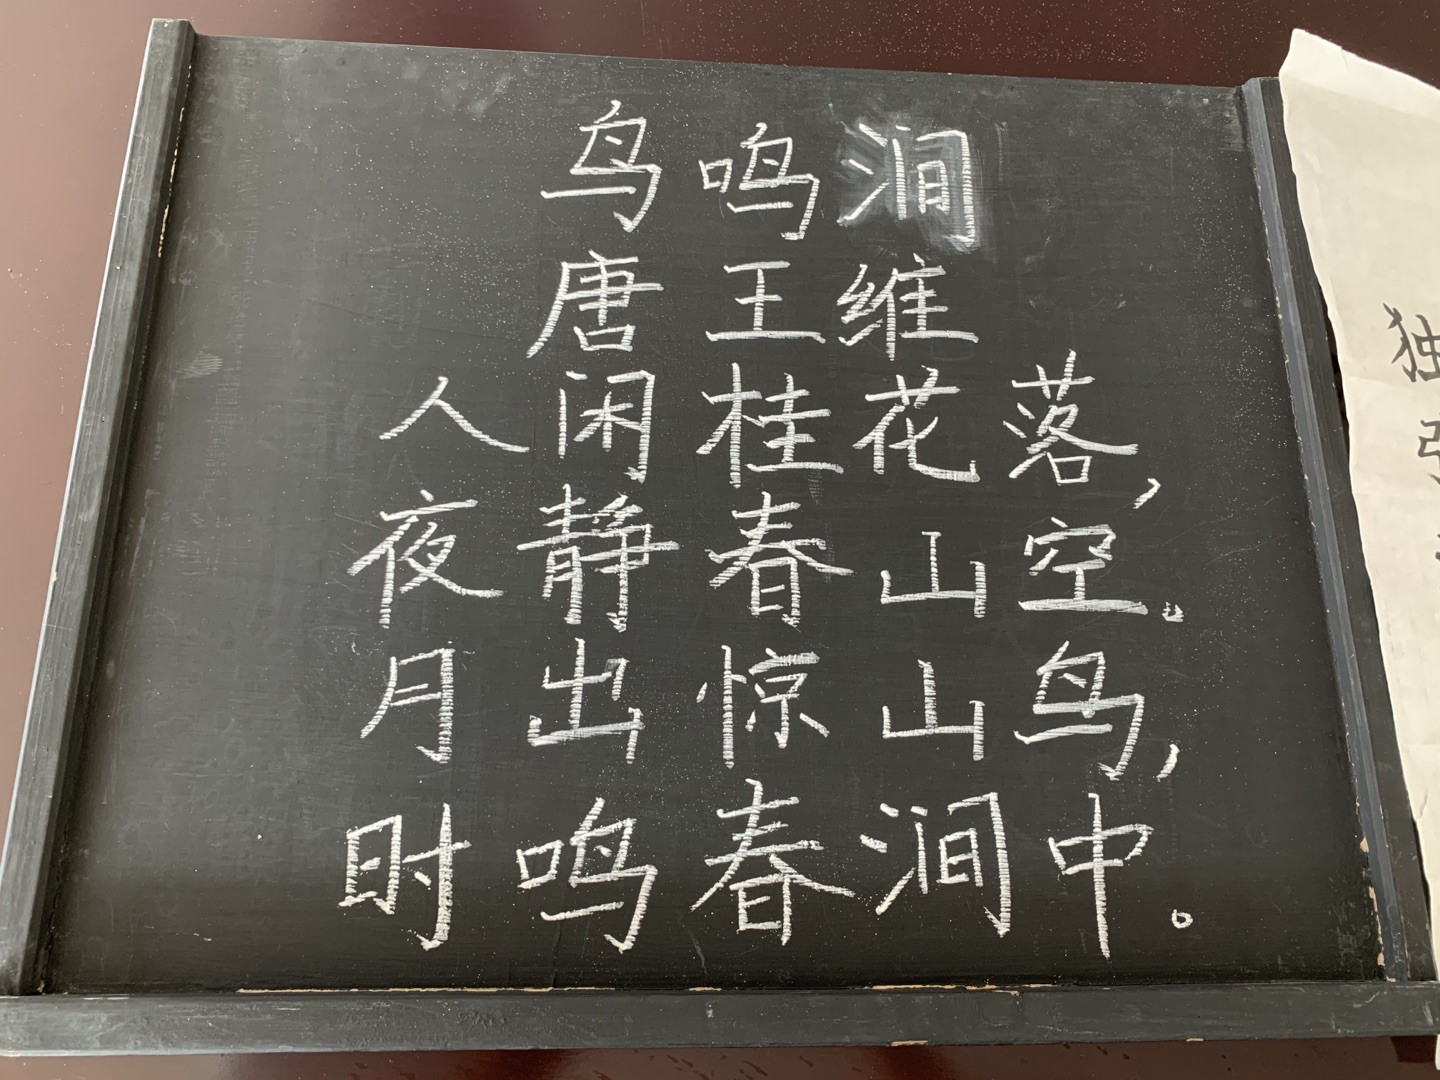 鸟鸣涧
唐王维
人闲桂花落，
夜静春山空。
月出惊山鸟，
时鸣春涧中。
独